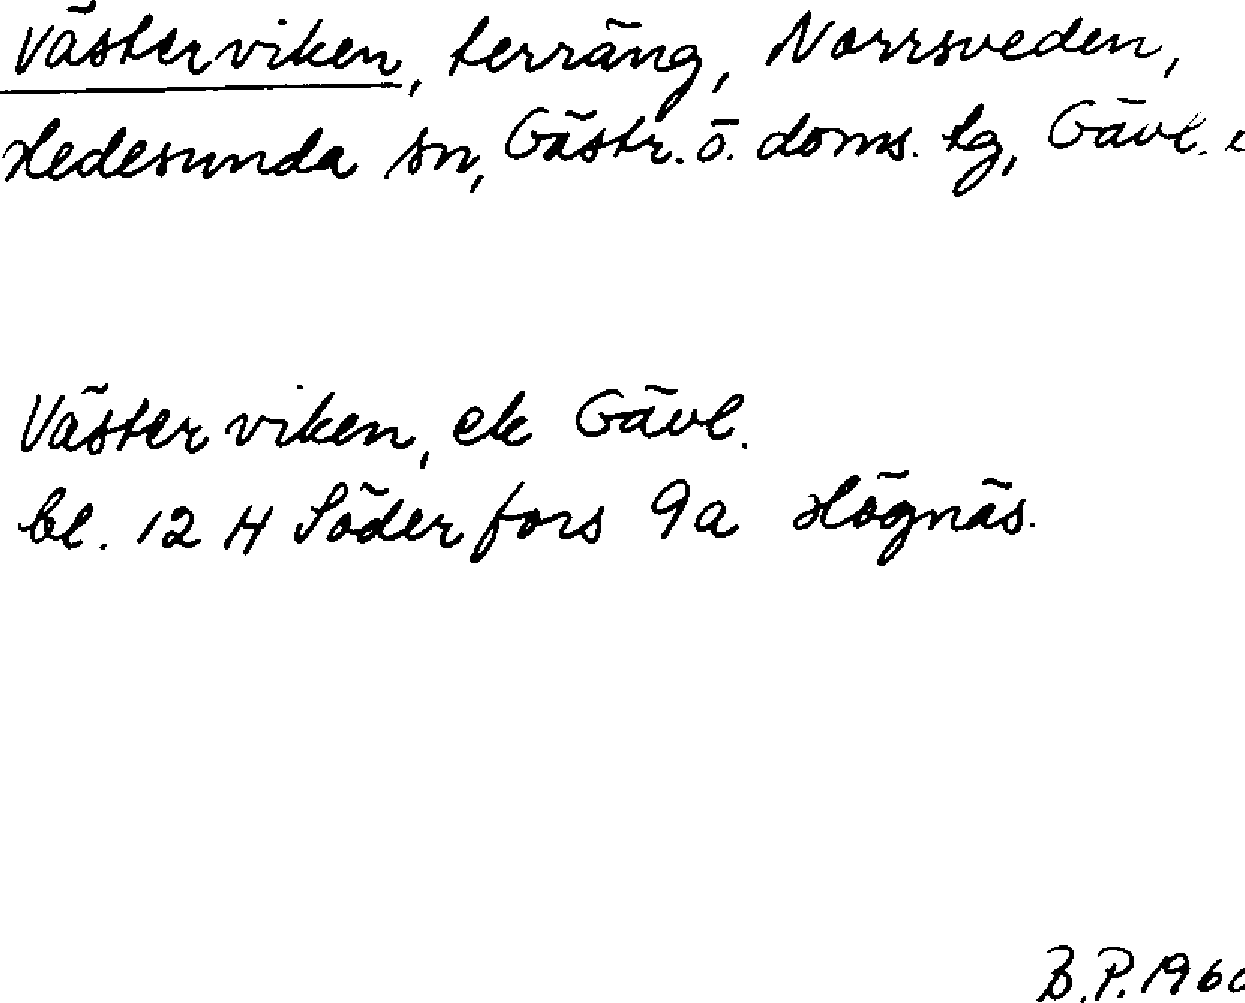 Västerviken, terräng, Norrsveden,
Hedesunda sn, Gästr. ö. doms. tg, Gävl.
Västerviken, ek Gävl.
bl. 12 H Söderfors 9a Högnäs.
B.P.